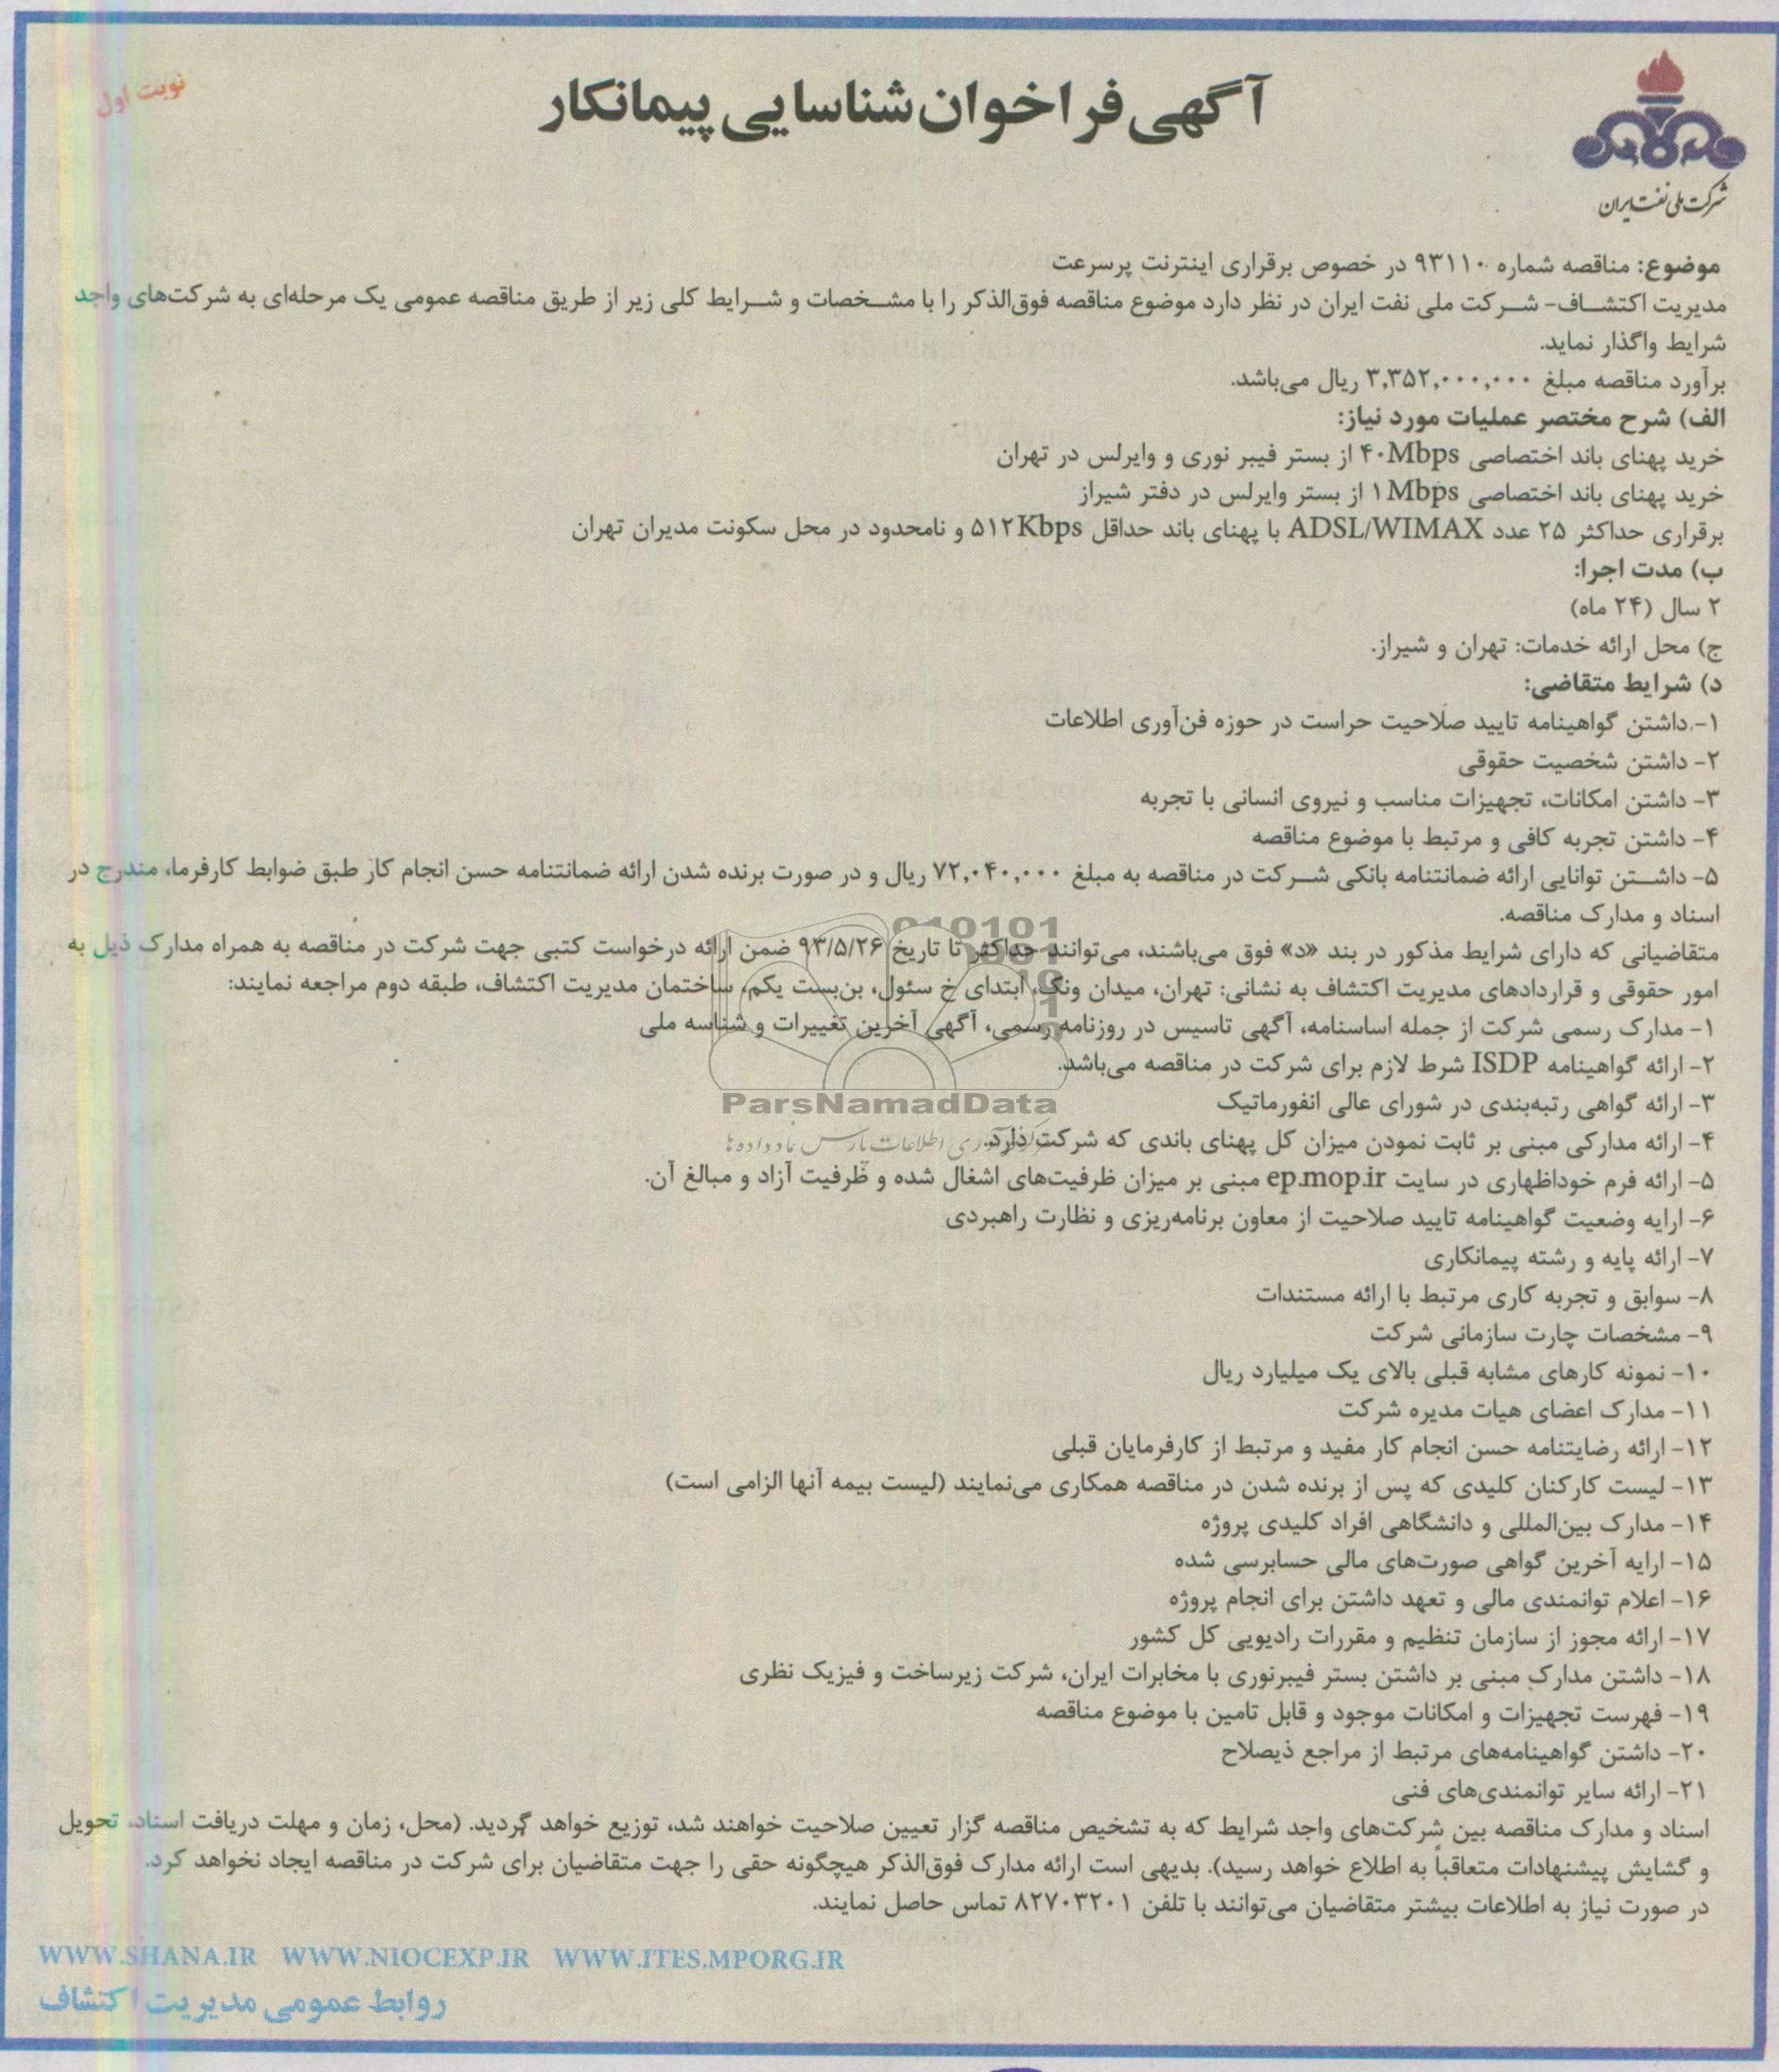 نوبت اول
آگهی فراخوان شناسایی پیمانکار
شرکت ملی نفت ایران
موضوع: مناقصه شماره ۹۳۱۱۰ در خصوص برقراری اینترنت پرسرعت
مدیریت اکتشاف- شرکت ملی نفت ایران در نظر دارد موضوع مناقصه فوق‌الذکر را با مشخصات و شرایط کلی زیر از طریق مناقصه عمومی یک مرحله‌ای به شرکت‌های واجد
شرایط واگذار نماید.
برآورد مناقصه مبلغ ۳,۳۵۲,۰۰۰,۰۰۰ ریال می‌باشد.
الف) شرح مختصر عملیات مورد نیاز:
خرید پهنای باند اختصاصی ۴۰Mbps از بستر فیبر نوری و وایرلس در تهران
خرید پهنای باند اختصاصی ۱Mbps از بستر وایرلس در دفتر شیراز
برقراری حداکثر ۲۵ عدد ADSL/WIMAX با پهنای باند حداقل ۵۱۲Kbps و نامحدود در محل سکونت مدیران تهران
ب) مدت اجرا:
۲ سال (۲۴ ماه)
ج) محل ارائه خدمات: تهران و شیراز.
د) شرایط متقاضی:
۱- داشتن گواهینامه تایید صلاحیت حراست در حوزه فن‌آوری اطلاعات
۲- داشتن شخصیت حقوقی
۳- داشتن امکانات، تجهیزات مناسب و نیروی انسانی با تجربه
۴- داشتن تجربه کافی و مرتبط با موضوع مناقصه
۵- داشتن توانایی ارائه ضمانتنامه بانکی شرکت در مناقصه به مبلغ ۷۲,۰۴۰,۰۰۰ ریال و در صورت برنده شدن ارائه ضمانتنامه حسن انجام کار طبق ضوابط کارفرما، مندرج در
اسناد و مدارک مناقصه.
متقاضیانی که دارای شرایط مذکور در بند «د» فوق می‌باشند، می‌توانند حداکثر تا تاریخ ۹۳/۵/۲۶ ضمن ارائه درخواست کتبی جهت شرکت در مناقصه به همراه مدارک ذیل به
امور حقوقی و قراردادهای مدیریت اکتشاف به نشانی: تهران، میدان ونک، ابتدای خ سئول، بن‌بست یکم، ساختمان مدیریت اکتشاف، طبقه دوم مراجعه نمایند:
۱- مدارک رسمی شرکت از جمله اساسنامه، آگهی تاسیس در روزنامه رسمی، آگهی آخرین تغییرات و شناسه ملی
۲- ارائه گواهینامه ISDP شرط لازم برای شرکت در مناقصه می‌باشد.
ParsNamadData
۳- ارائه گواهی رتبه‌بندی در شورای عالی انفورماتیک
۴- ارائه مدارکی مبنی بر ثابت نمودن میزان کل پهنای باندی که شرکت دارد.
۵- ارائه فرم خوداظهاری در سایت ep.mop.ir مبنی بر میزان ظرفیت‌های اشغال شده و ظرفیت آزاد و مبالغ آن.
۶- ارایه وضعیت گواهینامه تایید صلاحیت از معاون برنامه‌ریزی و نظارت راهبردی
۷- ارائه پایه و رشته پیمانکاری
۸- سوابق و تجربه کاری مرتبط با ارائه مستندات
۹- مشخصات چارت سازمانی شرکت
۱۰- نمونه کارهای مشابه قبلی بالای یک میلیارد ریال
۱۱- مدارک اعضای هیات مدیره شرکت
۱۲- ارائه رضایتنامه حسن انجام کار مفید و مرتبط از کارفرمایان قبلی
۱۳- لیست کارکنان کلیدی که پس از برنده شدن در مناقصه همکاری می‌نمایند (لیست بیمه آنها الزامی است)
۱۴- مدارک بین‌المللی و دانشگاهی افراد کلیدی پروژه
۱۵- ارایه آخرین گواهی صورت‌های مالی حسابرسی شده
۱۶- اعلام توانمندی مالی و تعهد داشتن برای انجام پروژه
۱۷- ارائه مجوز از سازمان تنظیم و مقررات رادیویی کل کشور
۱۸- داشتن مدارک مبنی بر داشتن بستر فیبرنوری با مخابرات ایران، شرکت زیرساخت و فیزیک نظری
۱۹- فهرست تجهیزات و امکانات موجود و قابل تامین با موضوع مناقصه
۲۰- داشتن گواهینامه‌های مرتبط از مراجع ذیصلاح
۲۱- ارائه سایر توانمندی‌های فنی
اسناد و مدارک مناقصه بین شرکت‌های واجد شرایط که به تشخیص مناقصه گزار تعیین صلاحیت خواهند شد، توزیع خواهد گردید. (محل، زمان و مهلت دریافت اسناد، تحویل
و گشایش پیشنهادات متعاقباً به اطلاع خواهد رسید). بدیهی است ارائه مدارک فوق‌الذکر هیچگونه حقی را جهت متقاضیان برای شرکت در مناقصه ایجاد نخواهد کرد.
در صورت نیاز به اطلاعات بیشتر متقاضیان می‌توانند با تلفن ۸۲۷۰۳۲۰۱ تماس حاصل نمایند.
WWW.SHANA.IR WWW.NIOCEXP.IR WWW.ITES.MPORG.IR
روابط عمومی مدیریت اکتشاف